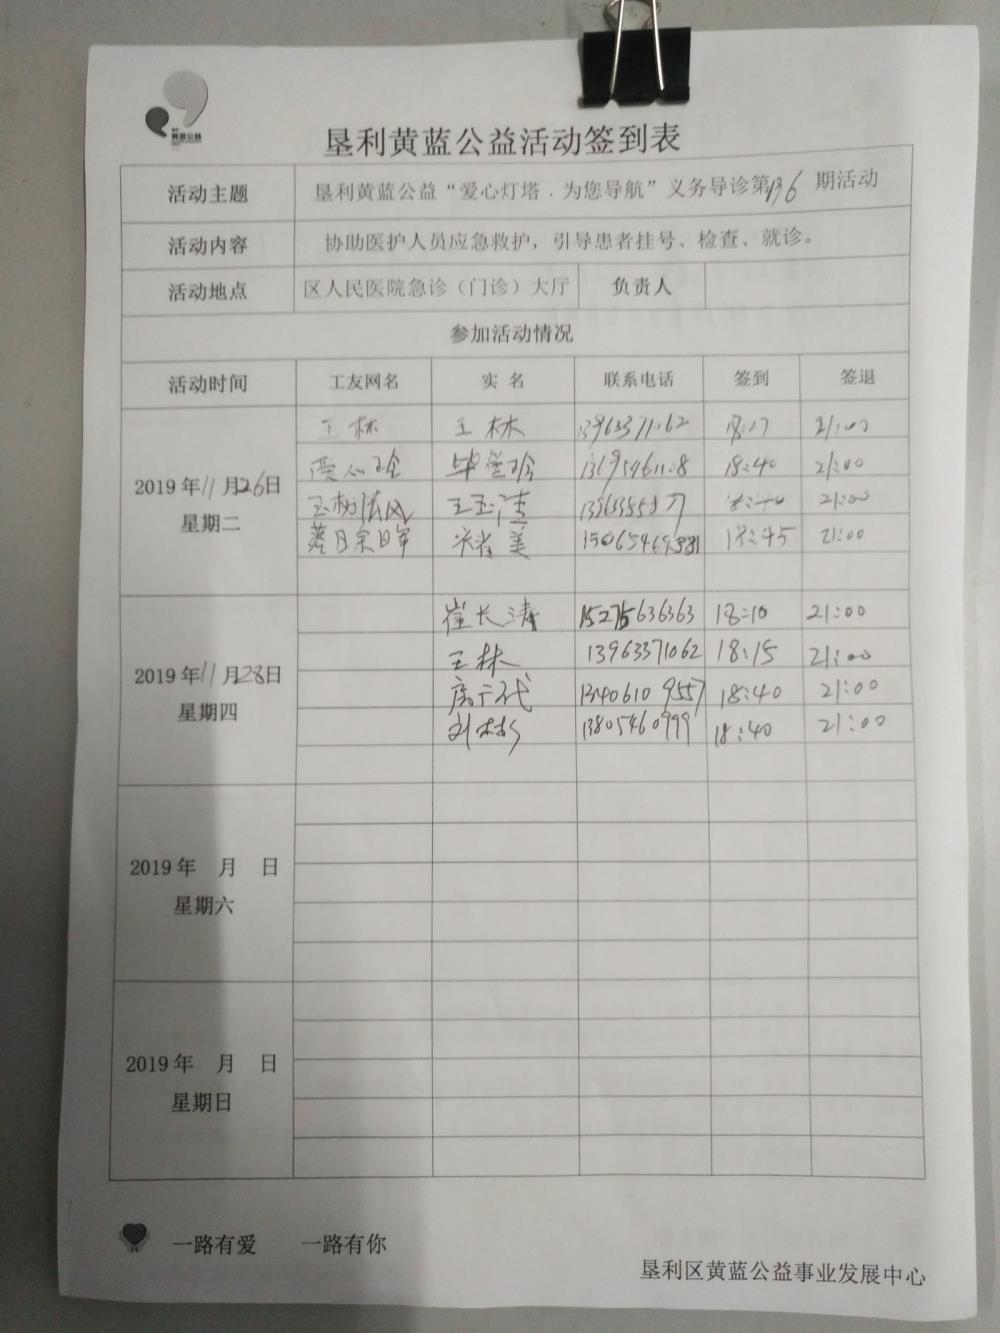 黄蓝公益
垦利黄蓝公益活动签到表
活动主题 垦利黄蓝公益“爱心灯塔．为您导航”义务导诊第136期活动
活动内容 协助医护人员应急救护，引导患者挂号、检查、就诊。
活动地点 区人民医院急诊（门诊）大厅 负责人
参加活动情况
活动时间 工友网名 实 名 联系电话 签到 签退
王林 王林 21:00
18:40 21:00
2019年11月26日
星期二
玉树临风 王玉洁 21:00
美 18:45 21:00
崔长清 15275636363 18:10 21:00
王林 13963371062 18:15 21:00
2019年11月28日
星期四
13406109557 18:40 21:00
刘彬 13805460999 18:40 21:00
2019年 月 日
星期六
2019年 月 日
星期日
一路有爱 一路有你
垦利区黄蓝公益事业发展中心